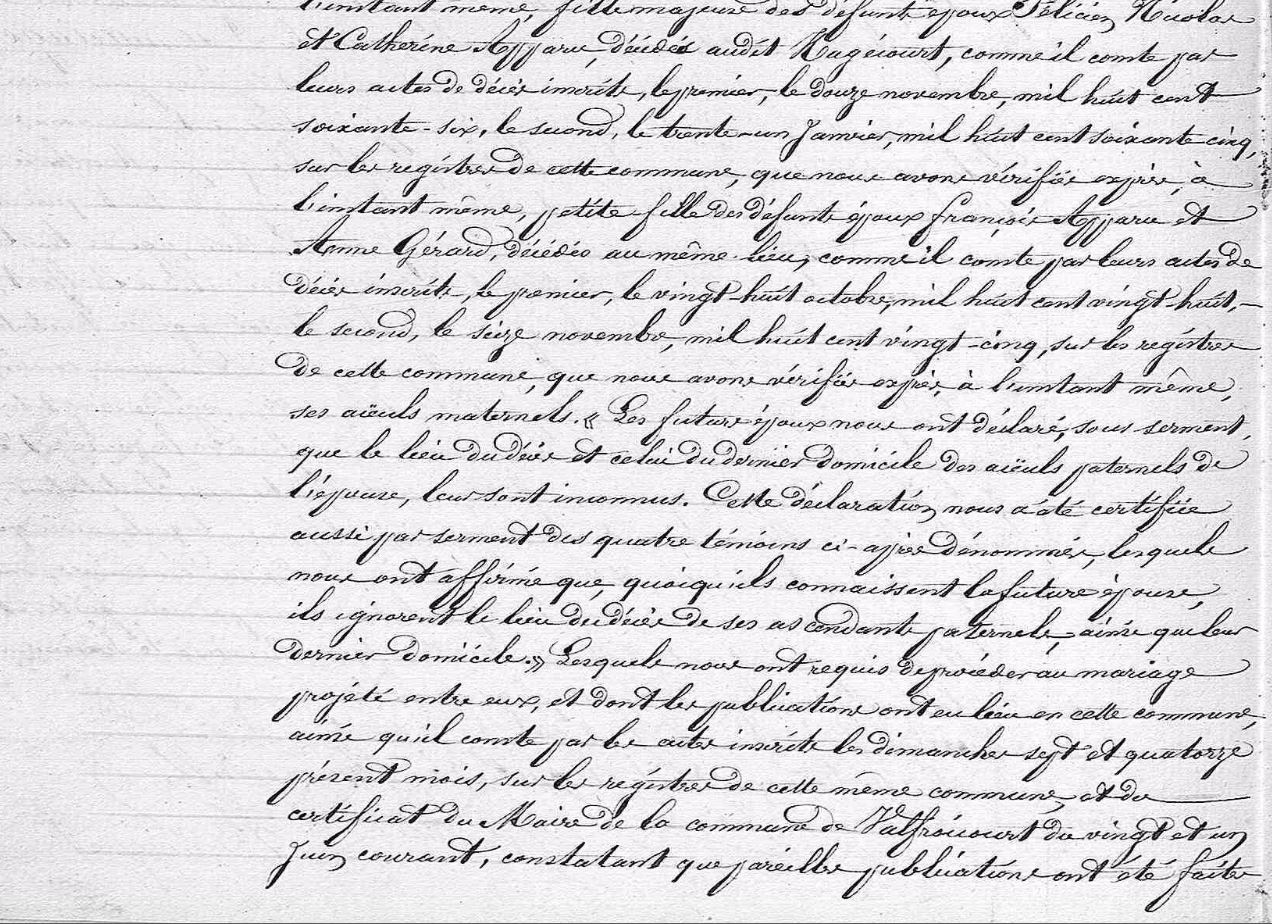 l'instant même, fille majeure des défunts époux Félicien Nicolas
et Catherine Apparu, décédés audit Hagécourt, comme il conste par
leurs actes de décès inscrits, le premier, le douze novembre, mil huit cent
soixante-six, le second, le trente-un Janvier, mil huit cent soixante cinq,
sur les registres de cette commune, que nous avons vérifiés exprès, à
l'instant même, petite-fille des défunts époux François Apparu et
Anne Gérard, décédés au même lieu, comme il conste par leurs actes de
décès inscrits, le premier, le vingt-huit octobre, mil huit cent vingt-huit,-
le second, le seize novembre, mil huit cent vingt-cinq, sur les registres
de cette commune, que nous avons vérifiés exprès, à l'instant même,
ses aïeuls maternels. « Les futurs époux nous ont déclaré, sous serment,
que le lieu du décès et celui du dernier domicile des aïeuls paternels de
l'épouse, leur sont inconnus. Cette déclaration nous a été certifiée
aussi par serment des quatre témoins ci-après dénommés, lesquels
nous ont affirmé que, quoiqu'ils connaissent la future épouse,
ils ignorent le lieu du décès de ses ascendants paternels, ainsi que leur
dernier domicile. » Lesquels nous ont requis de procéder au mariage
projeté entre eux, et dont les publications ont eu lieu en cette commune,
ainsi qu'il conste par les actes inscrits les dimanches sept et quatorze
présent mois, sur les registres de cette même commune, et du
certificat du Maire de la commune de Valfroicourt du vingt et un
Juin courant, constatant que pareilles publications ont été faites